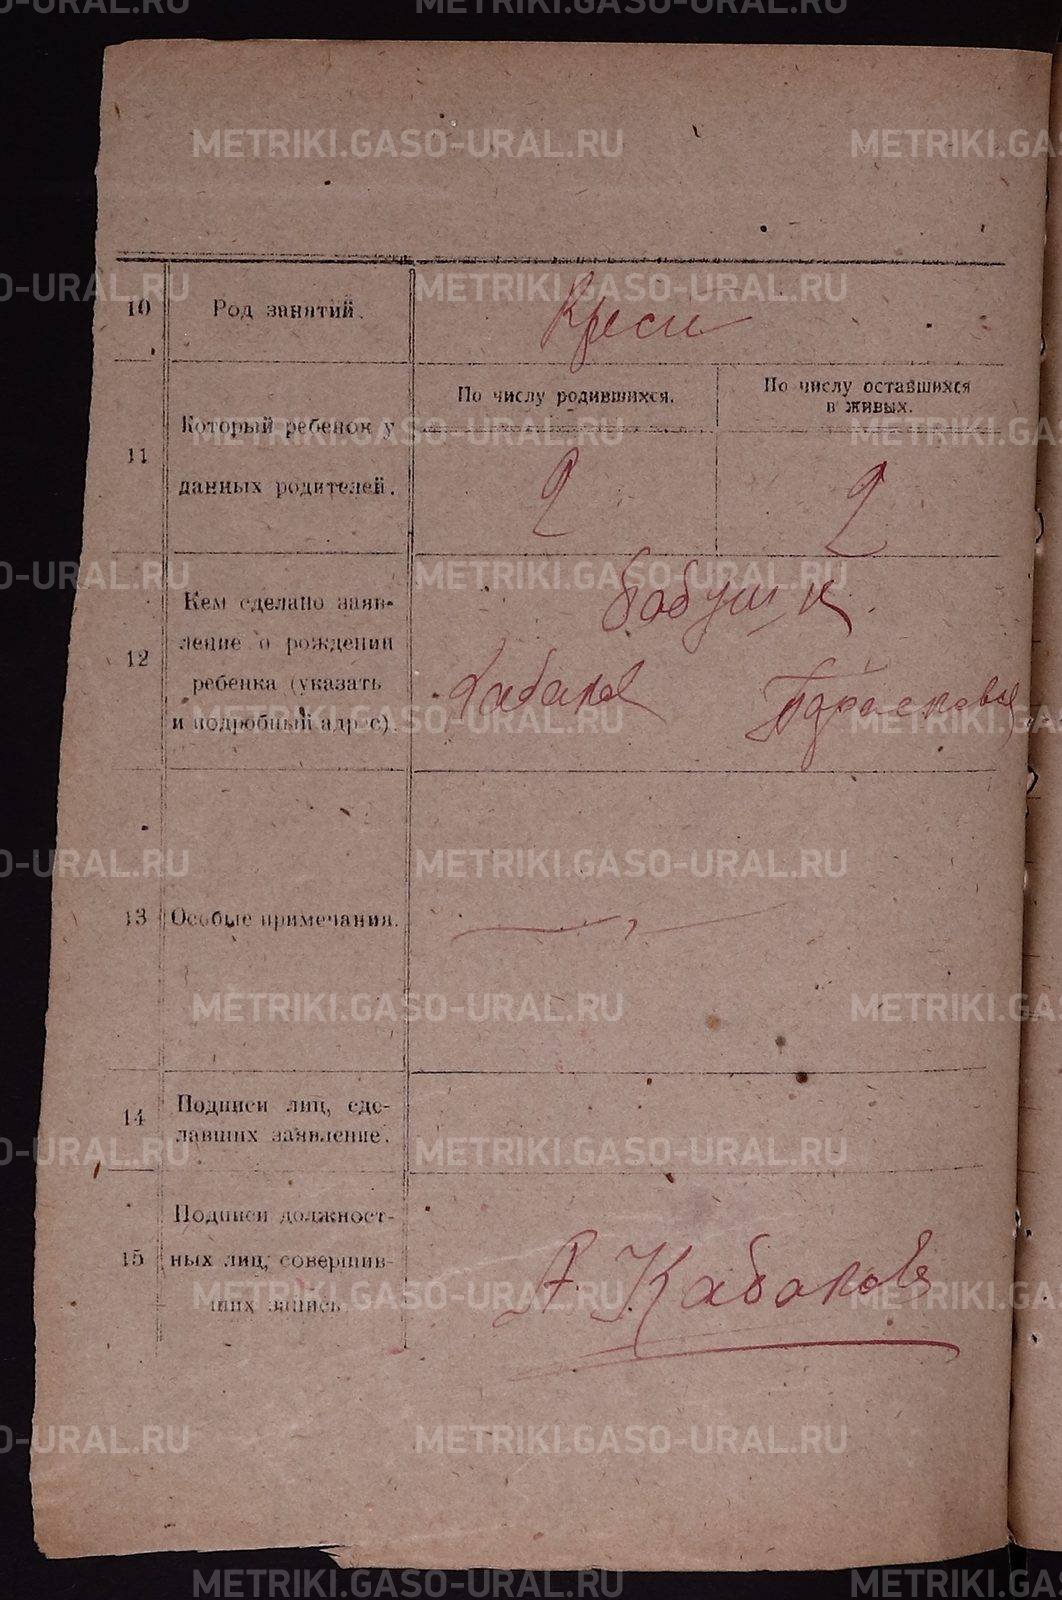 10 Род занятий. Кресн
По числу родившихся. По числу оставшихся
в живых.
11 Который ребенок у
данных родителей. 2 2
12 Кем сделано заяв-
ление о рождении
ребенка (указать
и подробный адрес).
бабушк
Кабаков Парасковья
13 Особые примечания.
14 Подписи лиц, сде-
лавших заявление.
15 Подписи должност-
ных лиц, совершив-
ших запись.
А. Кабаков
METRIKI.GASO-URAL.RU